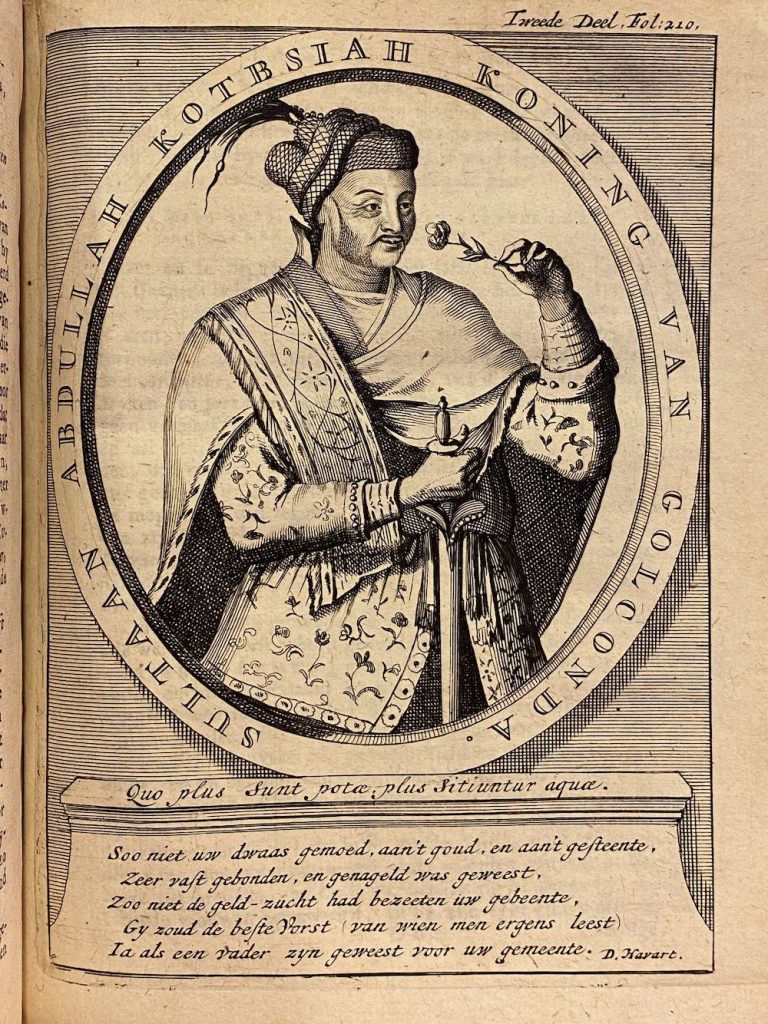 Tweede Deel. Fol: 210.
SULTAAN ABDULLAH KOTBSIAH KONING VAN GOLCONDA.
Quo plus sunt potæ, plus sitiuntur aquæ.
Soo niet uw dwaas gemoed, aan't goud, en aan't gesteente,
Zeer vast gebonden, en genageld was geweest,
Zoo niet de geld-zucht had bezeeten uw gebeente,
Gy zoud de beste Vorst (van wien men ergens leest)
Ia als een vader zyn geweest voor uw gemeente. D. Havart.